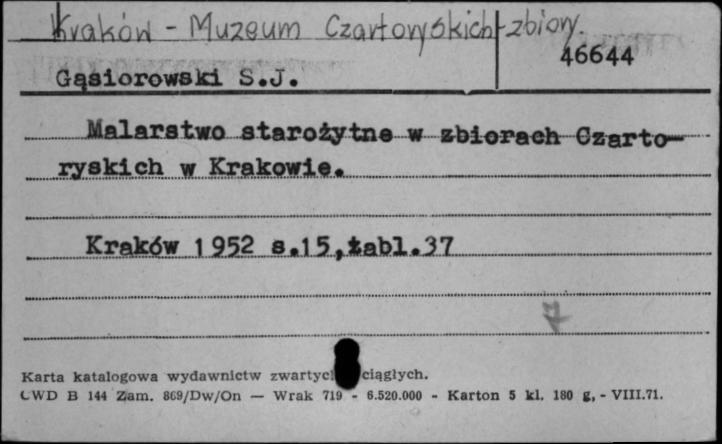 Kraków - Muzeum Czartoryskich - zbiory.
46644
Gąsiorowski S.J.
Malarstwo starożytne w zbiorach Czarto-
ryskich w Krakowie.
Kraków 1952 s.15, tabl.37
7
Karta katalogowa wydawnictw ciągłych.
CWD B 144 Zam. 869/Dw/On — Wrak 719 - 6.520.000 - Karton 5 kl. 180 g, - VIII.71.